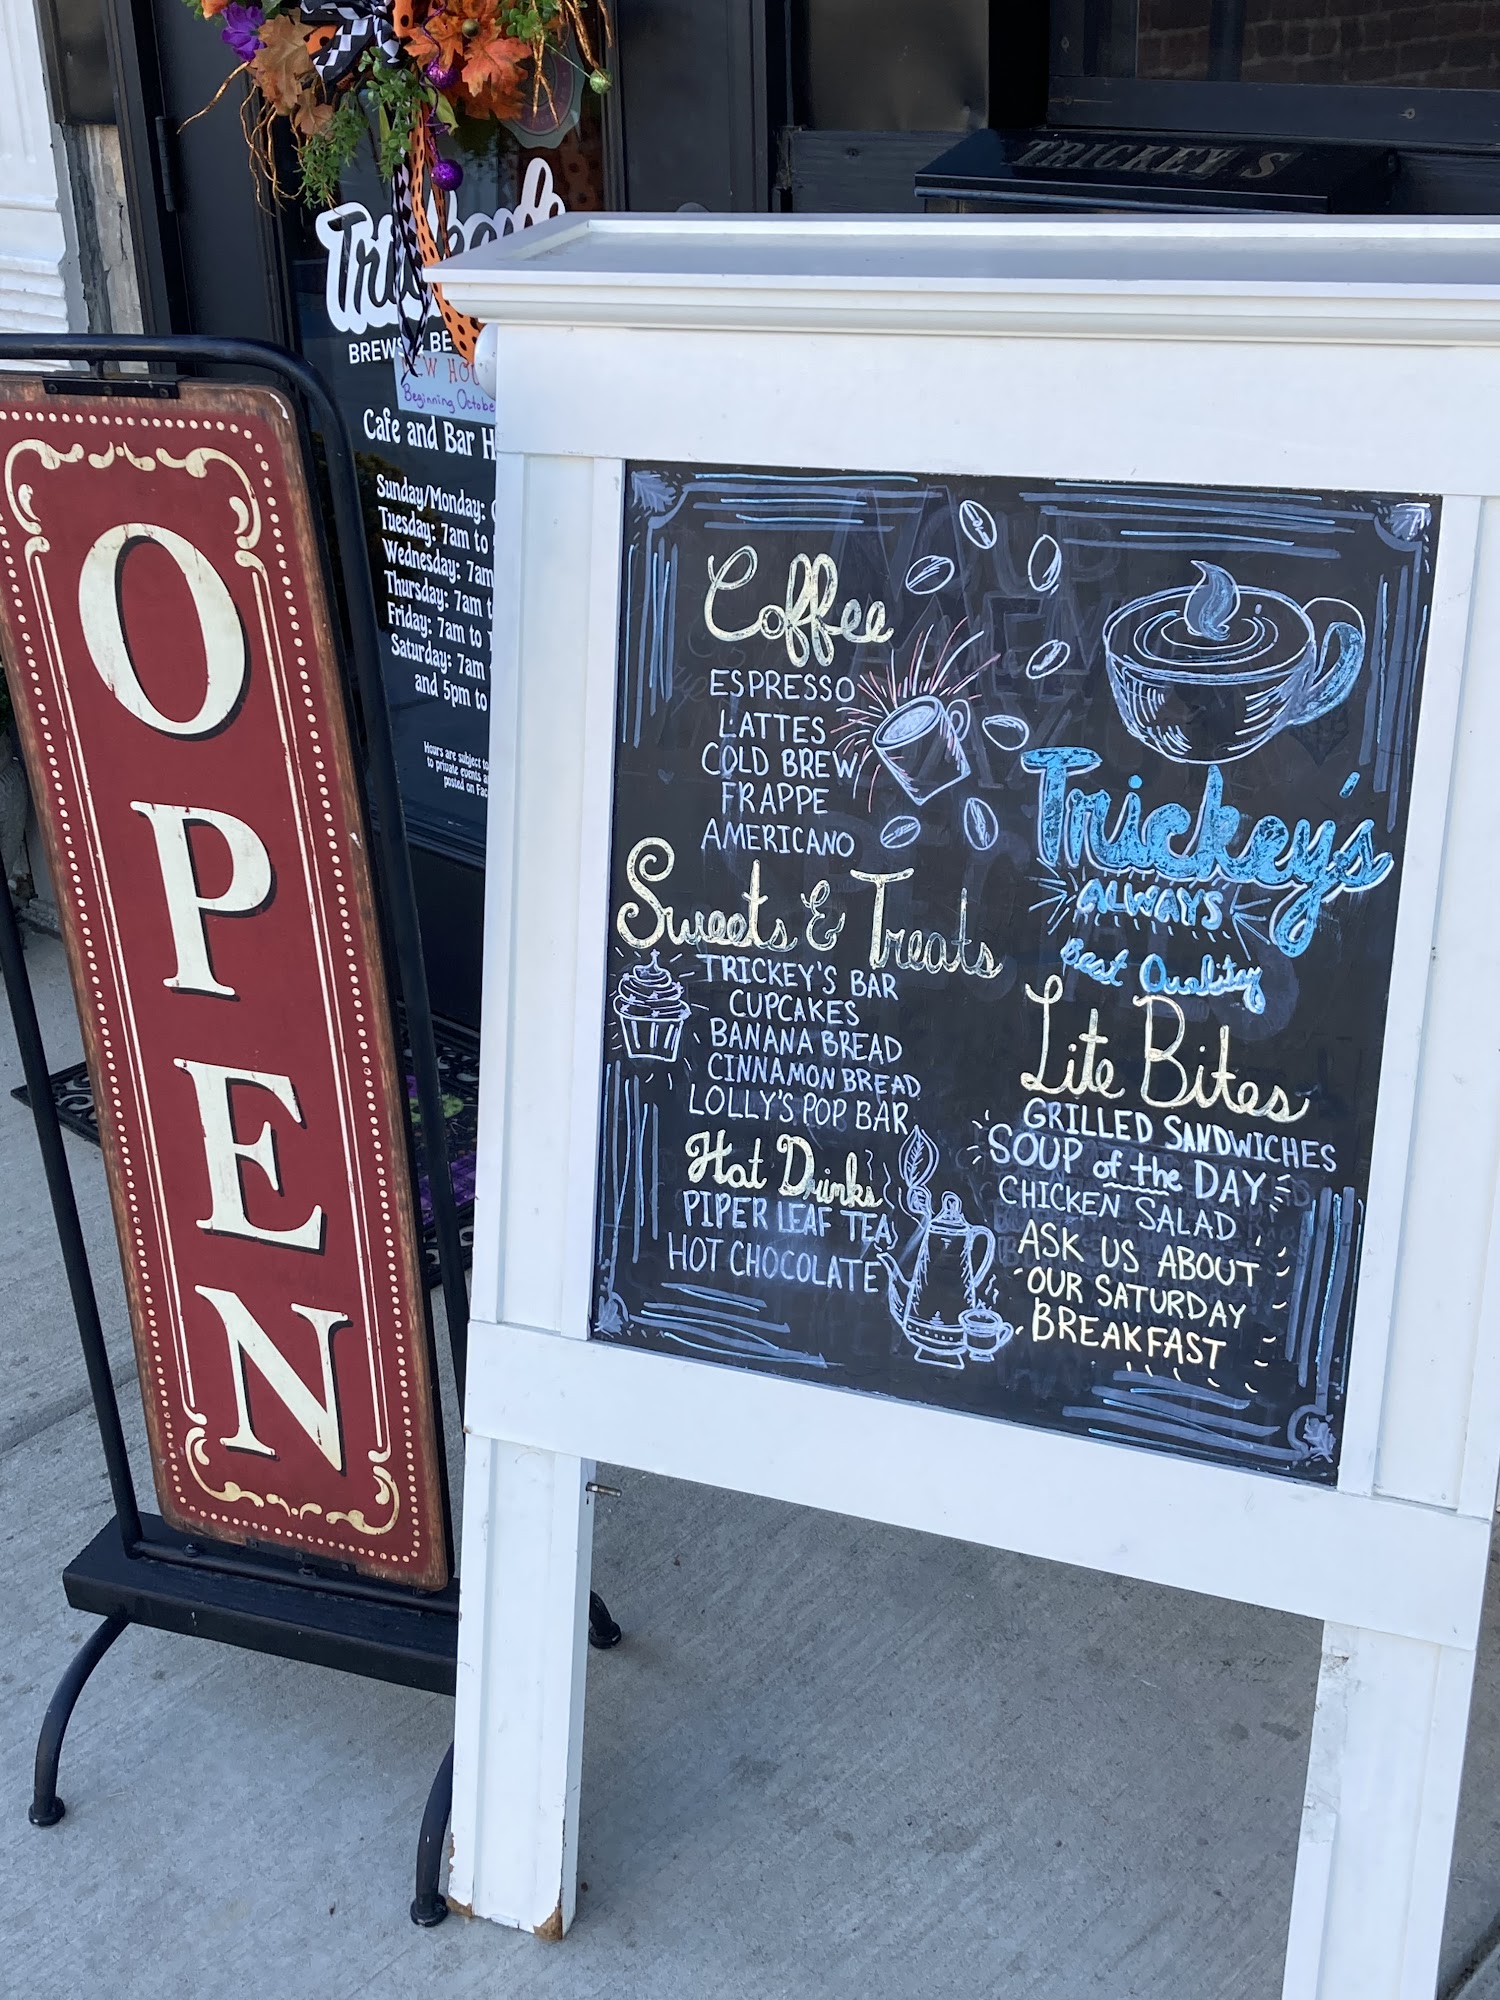 OPEN
TRICKEY'S
BREWS
BE
NEW HOU
Beginning Octobe
Cafe and Bar H
Sunday/Monday:
Tuesday: 7am to
Wednesday: 7am
Thursday: 7am
Friday: 7am to
Saturday: 7am
and 5pm to
Hours are subject to
to private events
posted on Fac
Coffee
ESPRESSO
LATTES
COLD BREW
FRAPPE
AMERICANO
Sweets & Treats
TRICKEY'S BAR
CUPCAKES
BANANA BREAD
CINNAMON BREAD
LOLLY'S POP BAR
Hot Drinks
PIPER LEAF TEA
HOT CHOCOLATE
Trickey's
ALWAYS
Best Quality
Lite Bites
GRILLED SANDWICHES
SOUP of the DAY
CHICKEN SALAD
ASK US ABOUT
OUR SATURDAY
BREAKFAST